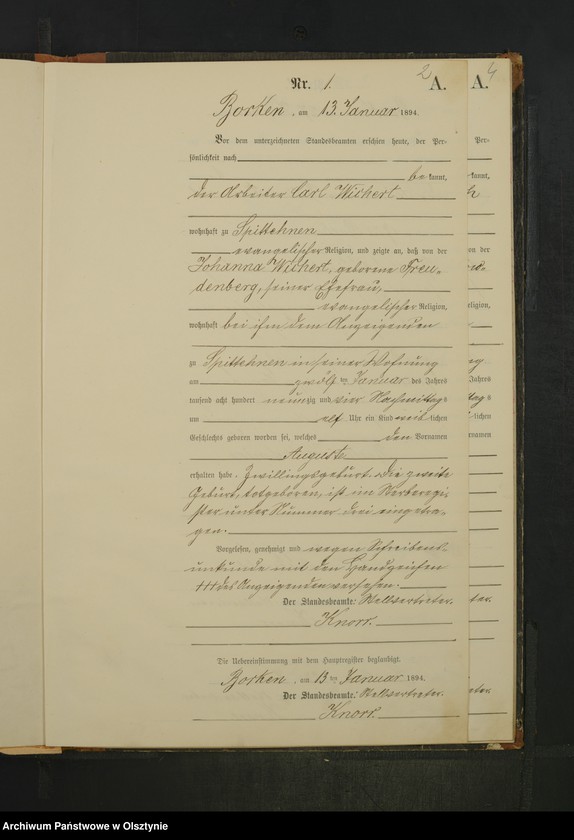 2 4
Nr. 1. A. A.
Borken, am 13. Januar 1894.
Vor dem unterzeichneten Standesbeamten erschien heute, der Per-
sönlichkeit nach
be kannt,
der Arbeiter Carl Wichert
wohnhaft zu Spittehnen
evangelischer Religion, und zeigte an, daß von der
Johanna Wichert, geborene Freu-
denberg, seiner Ehefrau,
evangelischer Religion,
wohnhaft bei ihm dem Anzeigenden
zu Spittehnen in seiner Wohnung
am zwölften Januar des Jahres
tausend acht hundert neunzig und vier Nachmittags
um elf Uhr ein Kind weiblichen
Geschlechts geboren worden sei, welches den Vornamen
Auguste
erhalten habe. Zwillingsgeburt. Die zweite
Geburt, totgeboren, ist im Sterberegi-
ster unter Nummer drei eingetra-
gen.
Vorgelesen, genehmigt und wegen Schreibens-
unkunde mit den Handzeichen
+++ des Anzeigenden versehen.
Der Standesbeamte: Stellvertreter.
Knorr.
Die Uebereinstimmung mit dem Hauptregister beglaubigt.
Borken, am 13ten Januar 1894.
Der Standesbeamte: Stellvertreter.
Knorr.
Per-
kannt,
on der
eligion,
Jahres
lichen
rnamen
Archiwum Państwowe w Olsztynie